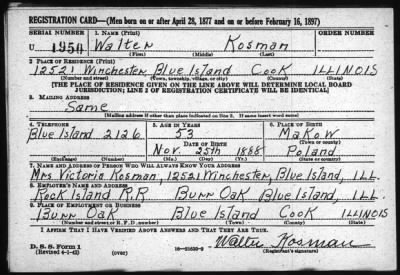 REGISTRATION CARD—(Men born on or after April 28, 1877 and on or before February 16, 1897)
SERIAL NUMBER 1. NAME (Print) ORDER NUMBER
U 1950 Walter Kosman
(First) (Middle) (Last)
2. PLACE OF RESIDENCE (Print)
12521 Winchester Blue Island Cook ILLINOIS
(Number and street) (Town, township, village, or city) (County) (State)
[THE PLACE OF RESIDENCE GIVEN ON THE LINE ABOVE WILL DETERMINE LOCAL BOARD
JURISDICTION; LINE 2 OF REGISTRATION CERTIFICATE WILL BE IDENTICAL]
3. MAILING ADDRESS
Same
[Mailing address if other than place indicated on line 2. If same insert word same]
4. TELEPHONE 5. AGE IN YEARS 6. PLACE OF BIRTH
Blue Island 2126 53 Makow
DATE OF BIRTH (Town or county)
Nov. 25th 1888 Poland
(Exchange) (Number) (Mo.) (Day) (Yr.) (State or country)
7. NAME AND ADDRESS OF PERSON WHO WILL ALWAYS KNOW YOUR ADDRESS
Mrs Victoria Kosman, 12521 Winchester, Blue Island, ILL.
8. EMPLOYER'S NAME AND ADDRESS
Rock Island R.R Burr Oak Blue Island, ILL
9. PLACE OF EMPLOYMENT OR BUSINESS
Burr Oak Blue Island Cook ILLINOIS
(Number and street or R. F. D. number) (Town) (County) (State)
I AFFIRM THAT I HAVE VERIFIED ABOVE ANSWERS AND THAT THEY ARE TRUE.
D. S. S. Form 1
(Revised 4-1-42) (over) Walter Kosman
(Registrant's signature)